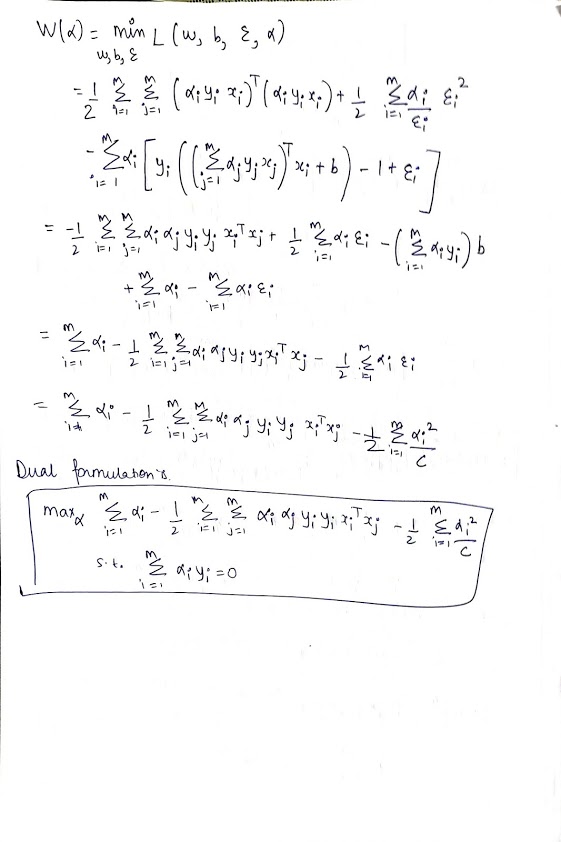 W(α) = min L (w, b, ε, α)
w,b,ε
= 1/2 Σ_{i=1}^{m} Σ_{j=1}^{m} (α_i y_i x_i)^T (α_j y_j x_j) + 1/2 Σ_{i=1}^{m} α_i/ε_i ε_i^2
- Σ_{i=1}^{m} α_i [ y_i ( ( Σ_{j=1}^{m} α_j y_j x_j )^T x_i + b ) - 1 + ε_i ]
= -1/2 Σ_{i=1}^{m} Σ_{j=1}^{m} α_i α_j y_i y_j x_i^T x_j + 1/2 Σ_{i=1}^{m} α_i ε_i - ( Σ_{i=1}^{m} α_i y_i ) b
+ Σ_{i=1}^{m} α_i - Σ_{i=1}^{m} α_i ε_i
= Σ_{i=1}^{m} α_i - 1/2 Σ_{i=1}^{m} Σ_{j=1}^{m} α_i α_j y_i y_j x_i^T x_j - 1/2 Σ_{i=1}^{m} α_i ε_i
= Σ_{i=1}^{m} α_i - 1/2 Σ_{i=1}^{m} Σ_{j=1}^{m} α_i α_j y_i y_j x_i^T x_j - 1/2 Σ_{i=1}^{m} α_i^2/C
Dual formulation is
max_α Σ_{i=1}^{m} α_i - 1/2 Σ_{i=1}^{m} Σ_{j=1}^{m} α_i α_j y_i y_j x_i^T x_j - 1/2 Σ_{i=1}^{m} α_i^2/C
s.t. Σ_{i=1}^{m} α_i y_i = 0